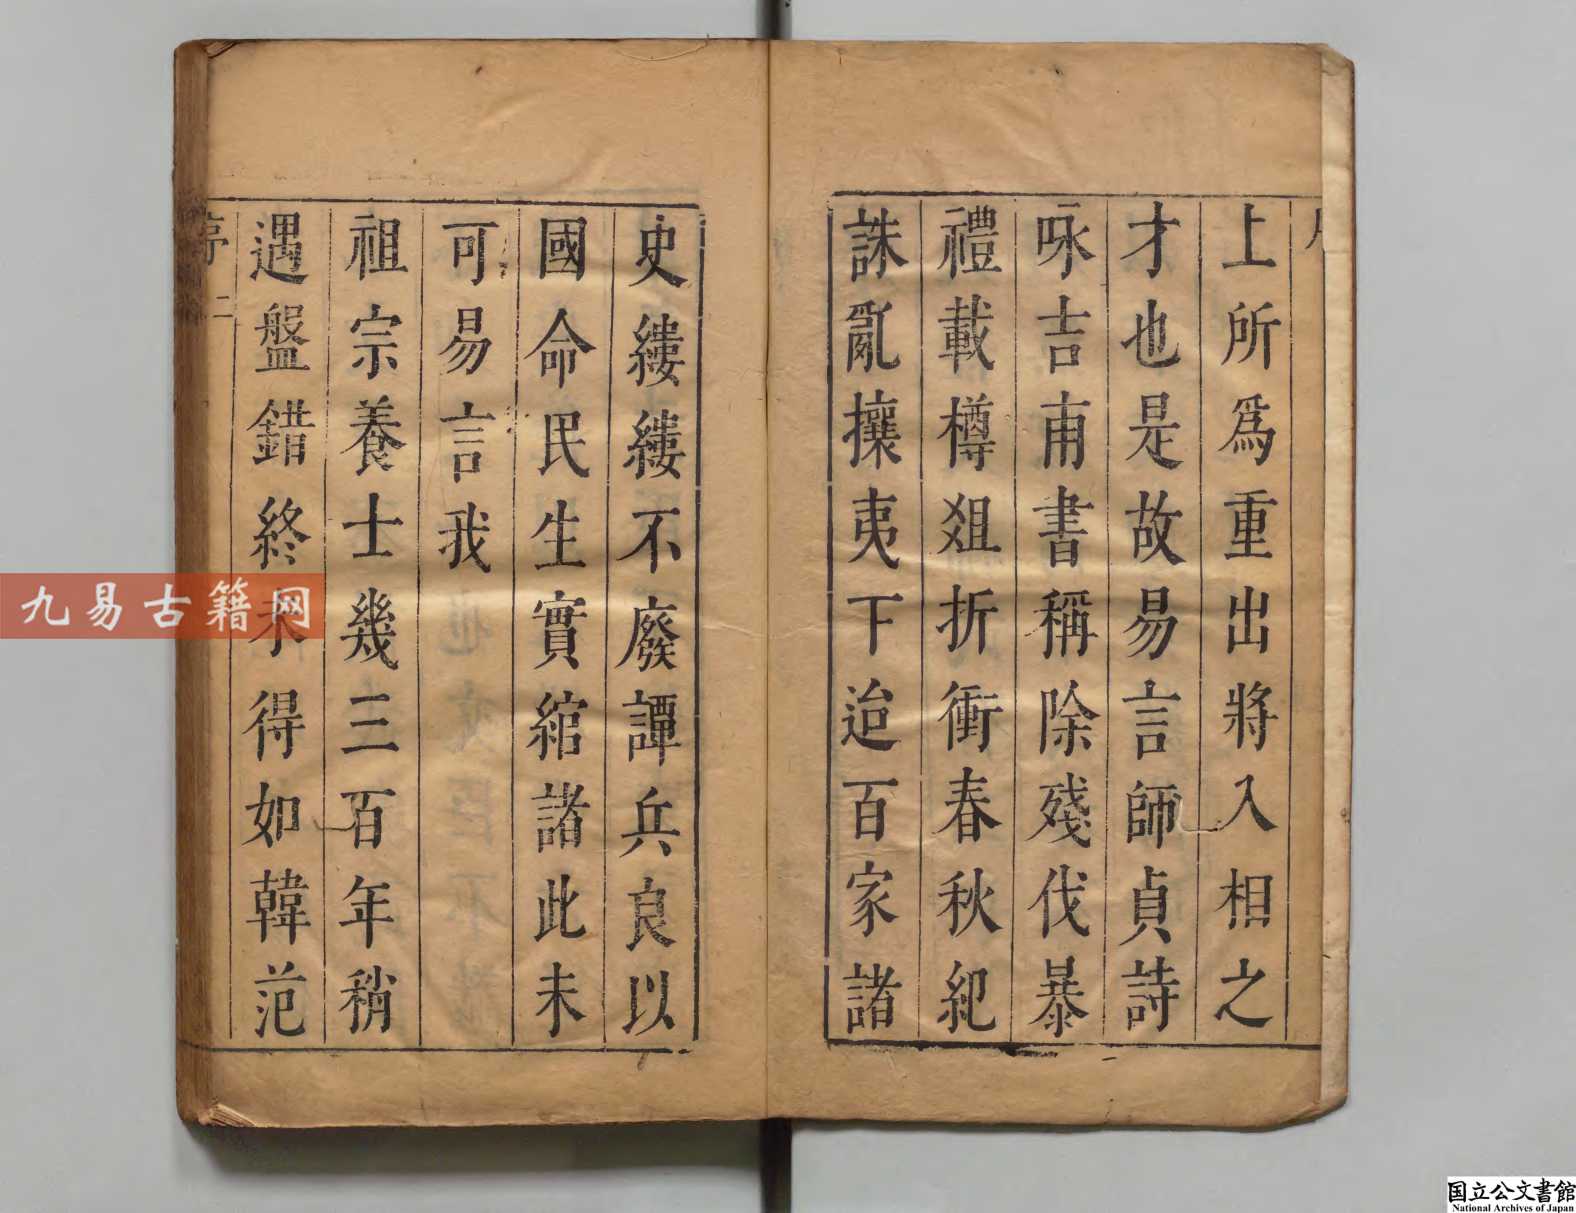 上所爲重出將入相之
才也是故易言師貞詩
咏吉甫書稱除殘伐暴
禮載樽爼折衝春秋紀
誅亂攘夷下迨百家諸
史縷縷不廢譚兵良以
國命民生實綰諸此未
可易言我
祖宗養士幾三百年稍
遇盤錯終未得如韓范
二
九易古籍网
国立公文書館
National Archives of Japan